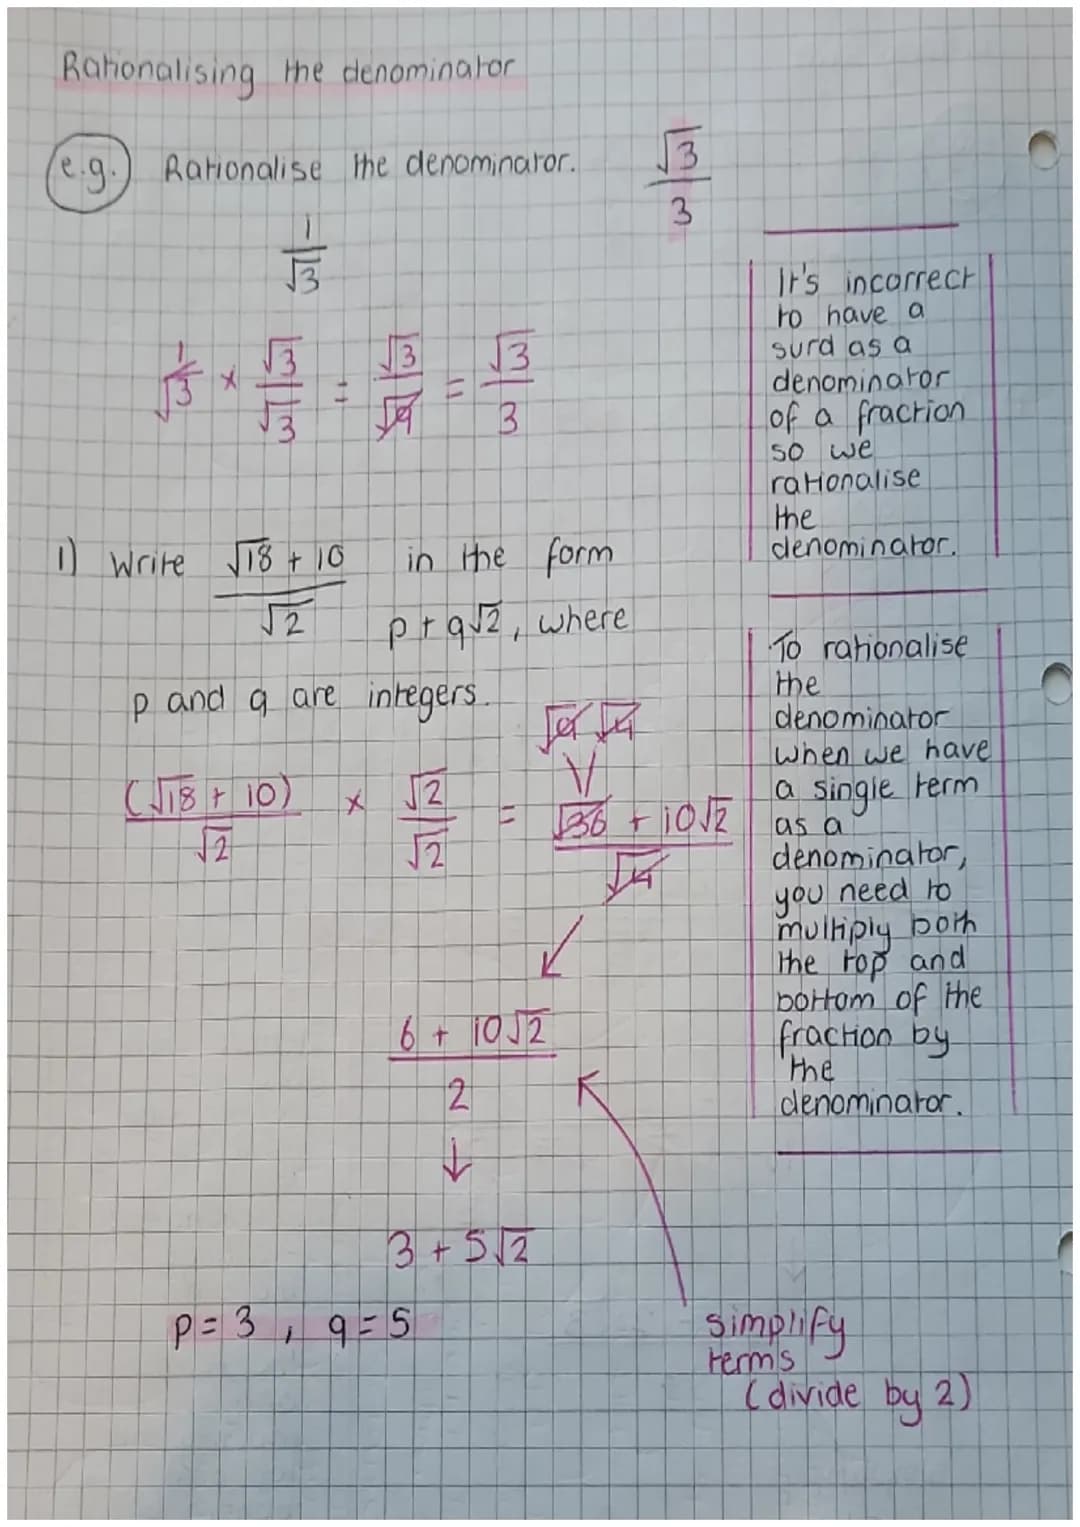 Rationalising the denominator
e.g. Rationalise the denominator. √3/3
1/√3
1/√3 × √3/√3 = √3/√9 = √3/3
It's incorrect
to have a
surd as a
denominator
of a fraction
so we
rationalise
the
denominator.
1) Write (√18 + 10)/√2 in the form
p + q√2, where
p and q are integers.
√9 √4
(√18 + 10)/√2 × √2/√2 = (√36 + 10√2)/√4
(6 + 10√2)/2
3 + 5√2
p = 3, q = 5
To rationalise
the
denominator
when we have
a single term
as a
denominator,
you need to
multiply both
the top and
bottom of the
fraction by
the
denominator.
simplify
terms
(divide by 2)